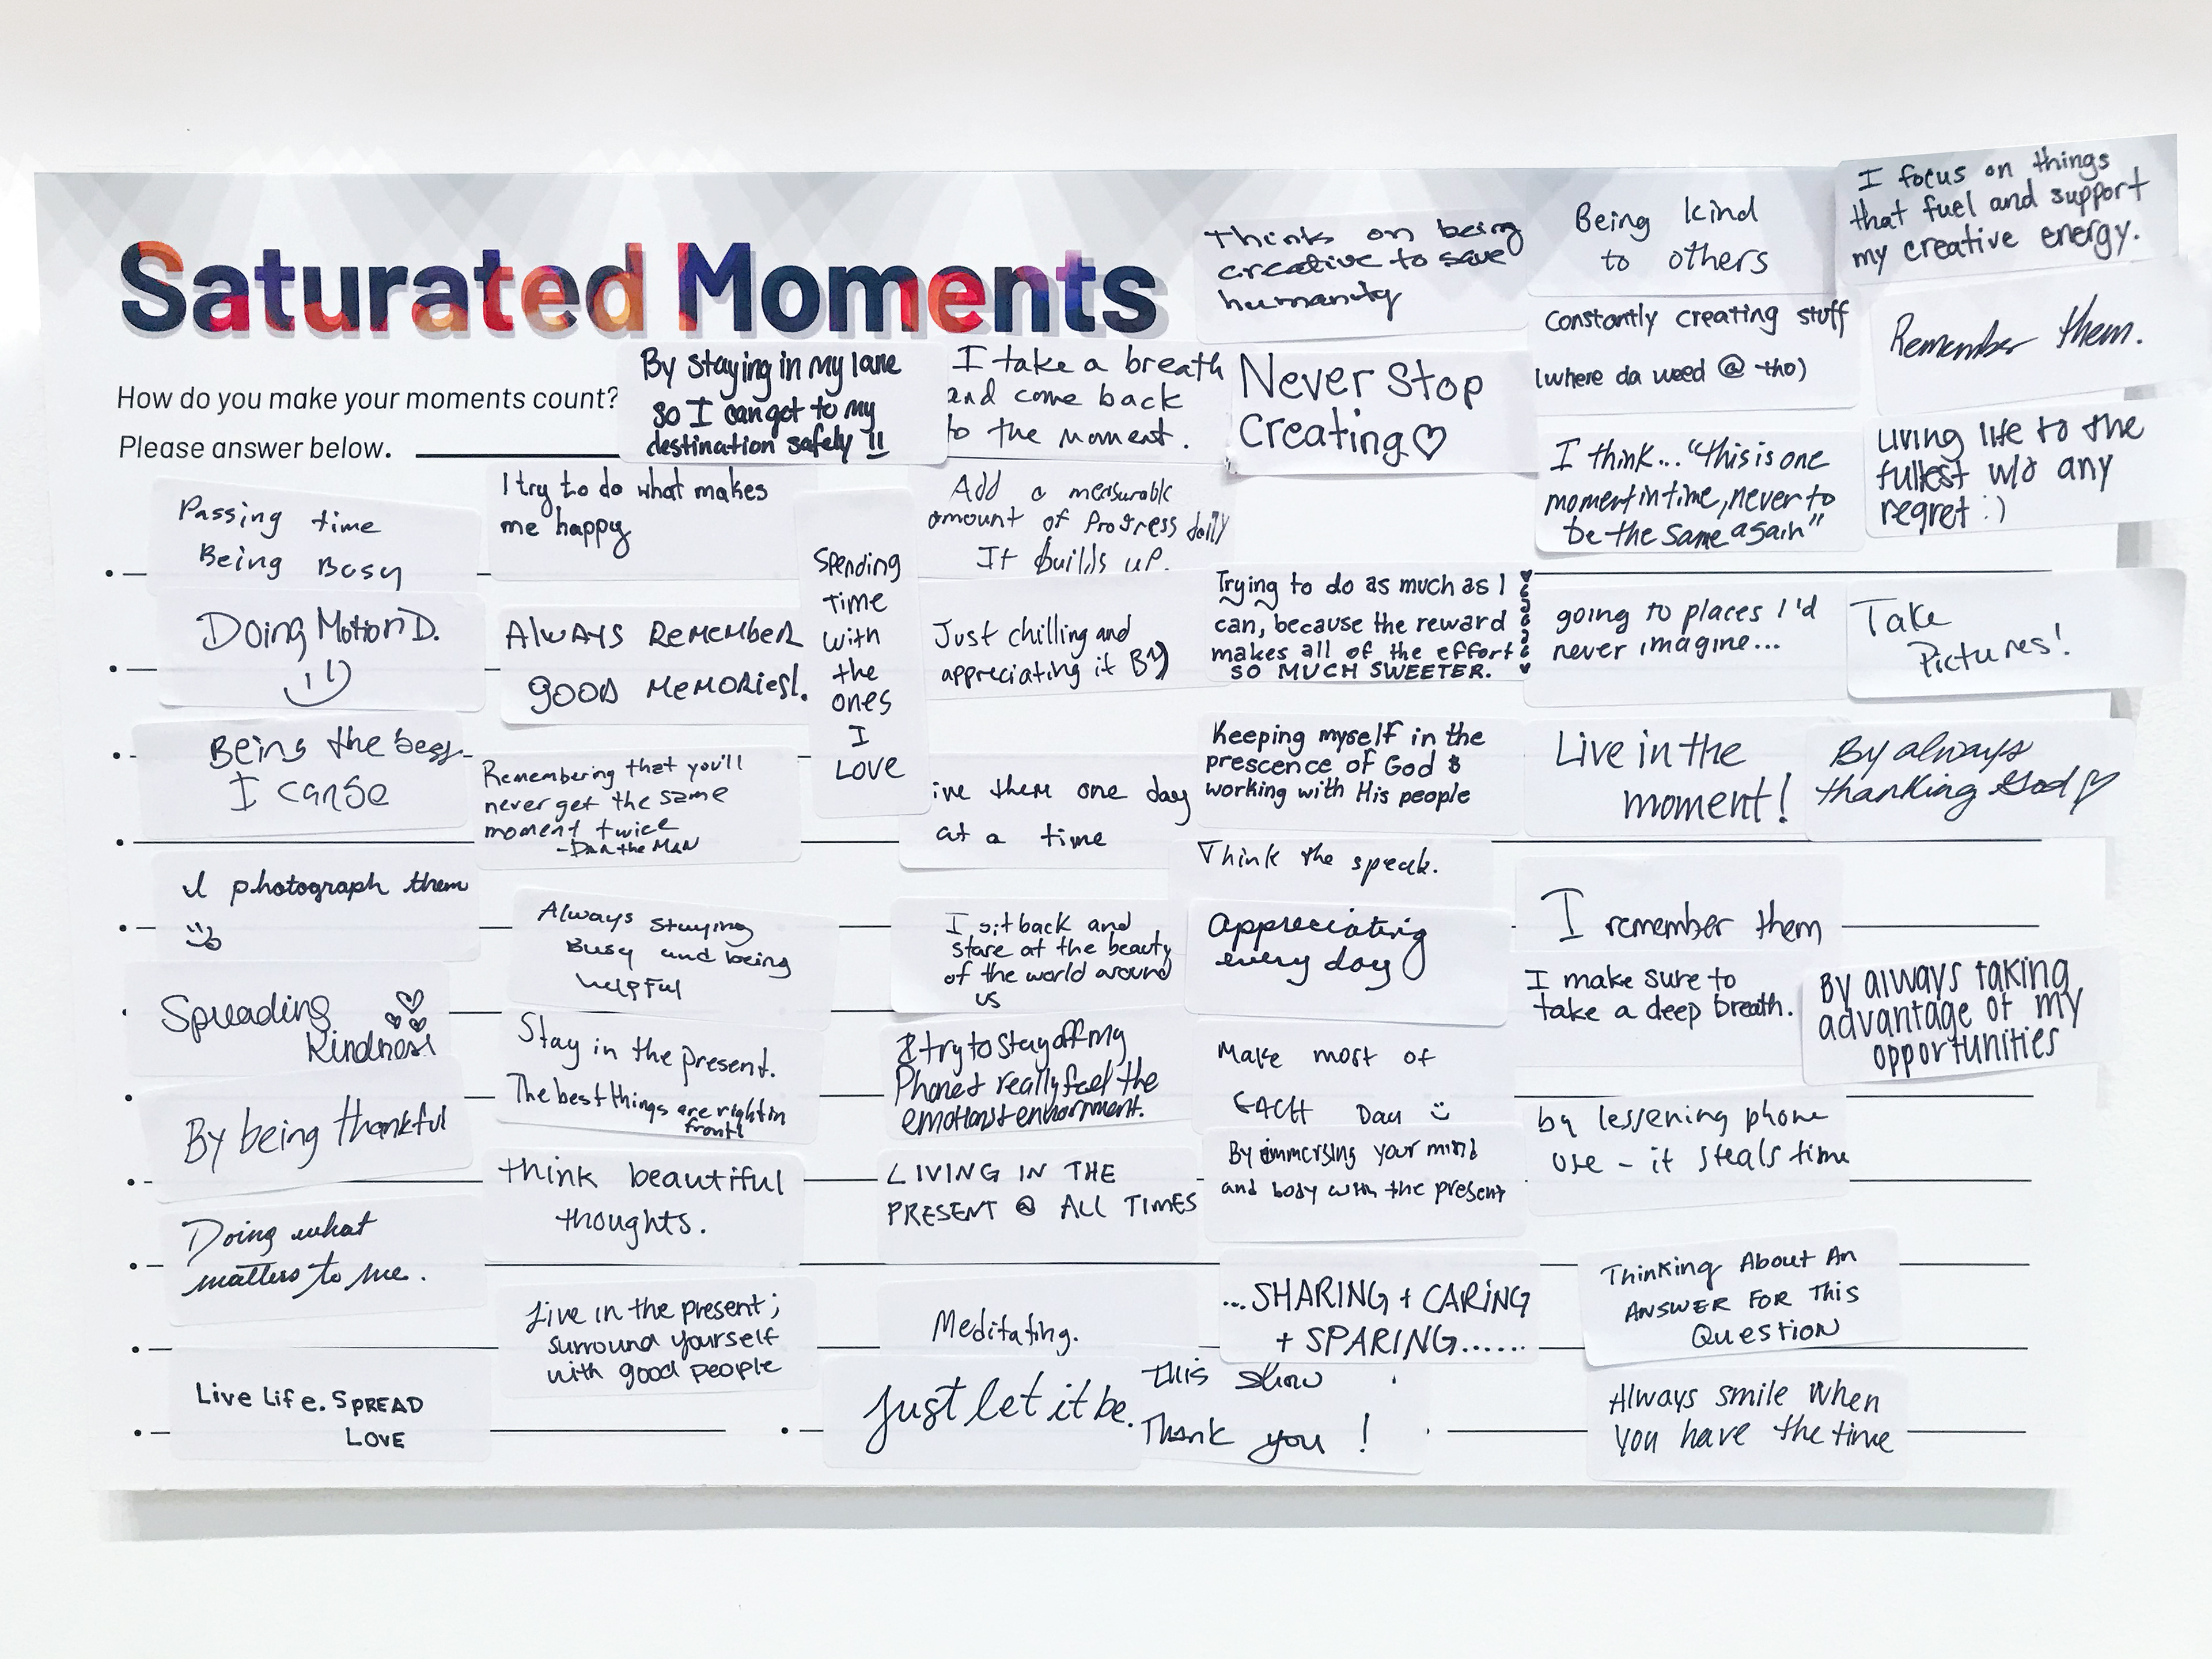 Saturated Moments
How do you make your moments count?
Please answer below.
By staying in my lane
so I can get to my
destination safely !!
I take a breath
and come back
to the moment.
Thinks on being
creative to save
humanity
Never Stop
Creating♡
Being kind
to others
Constantly creating stuff
(where da weed @ tho)
I think... "this is one
moment in time, never to
be the same again"
I focus on things
that fuel and support
my creative energy.
Remember them.
Living life to the
fullest w/o any
regret :)
Passing time
Being Busy
Doing Motion D.
Being the best
I can be
I photograph them
Spreading
Kindness!
By being thankful
Doing what
matters to me.
Live Life. SPREAD
LOVE
I try to do what makes
me happy
ALWAYS REMEMBER
GOOD MEMORIES!.
Remembering that you'll
never get the same
moment twice
-Dan the MAN
Always Staying
Busy and being
helpful
Stay in the present.
The best things are right in
front!
think beautiful
thoughts.
Live in the present;
surround yourself
with good people
Spending
Time
with
the
ones
I
LOVE
Add a measurable
amount of Progress daily
It builds up.
Just chilling and
appreciating it B)
ive them one day
at a time
I sit back and
stare at the beauty
of the world around
us
I try to stay off my
Phone & really feel the
LIVING IN THE
PRESENT @ ALL TIMES
Meditating.
Just let it be.
Trying to do as much as I
can, because the reward
makes all of the effort
SO MUCH SWEETER.
Keeping myself in the
prescence of God &
working with His people
Think the speak.
Appreciating
every day
Make most of
EACH Day
By immersing your mind
and body with the present
...SHARING + CARING
+ SPARING......
This show
Thank you !
going to places I'd
never imagine...
Live in the
moment!
I remember them
I make sure to
take a deep breath.
by lessening phone
use - it steals time
Thinking About An
ANSWER FOR This
Question
Always smile when
you have the time
Take
Pictures!
By always
thanking God ♡
By always taking
advantage of my
opportunities